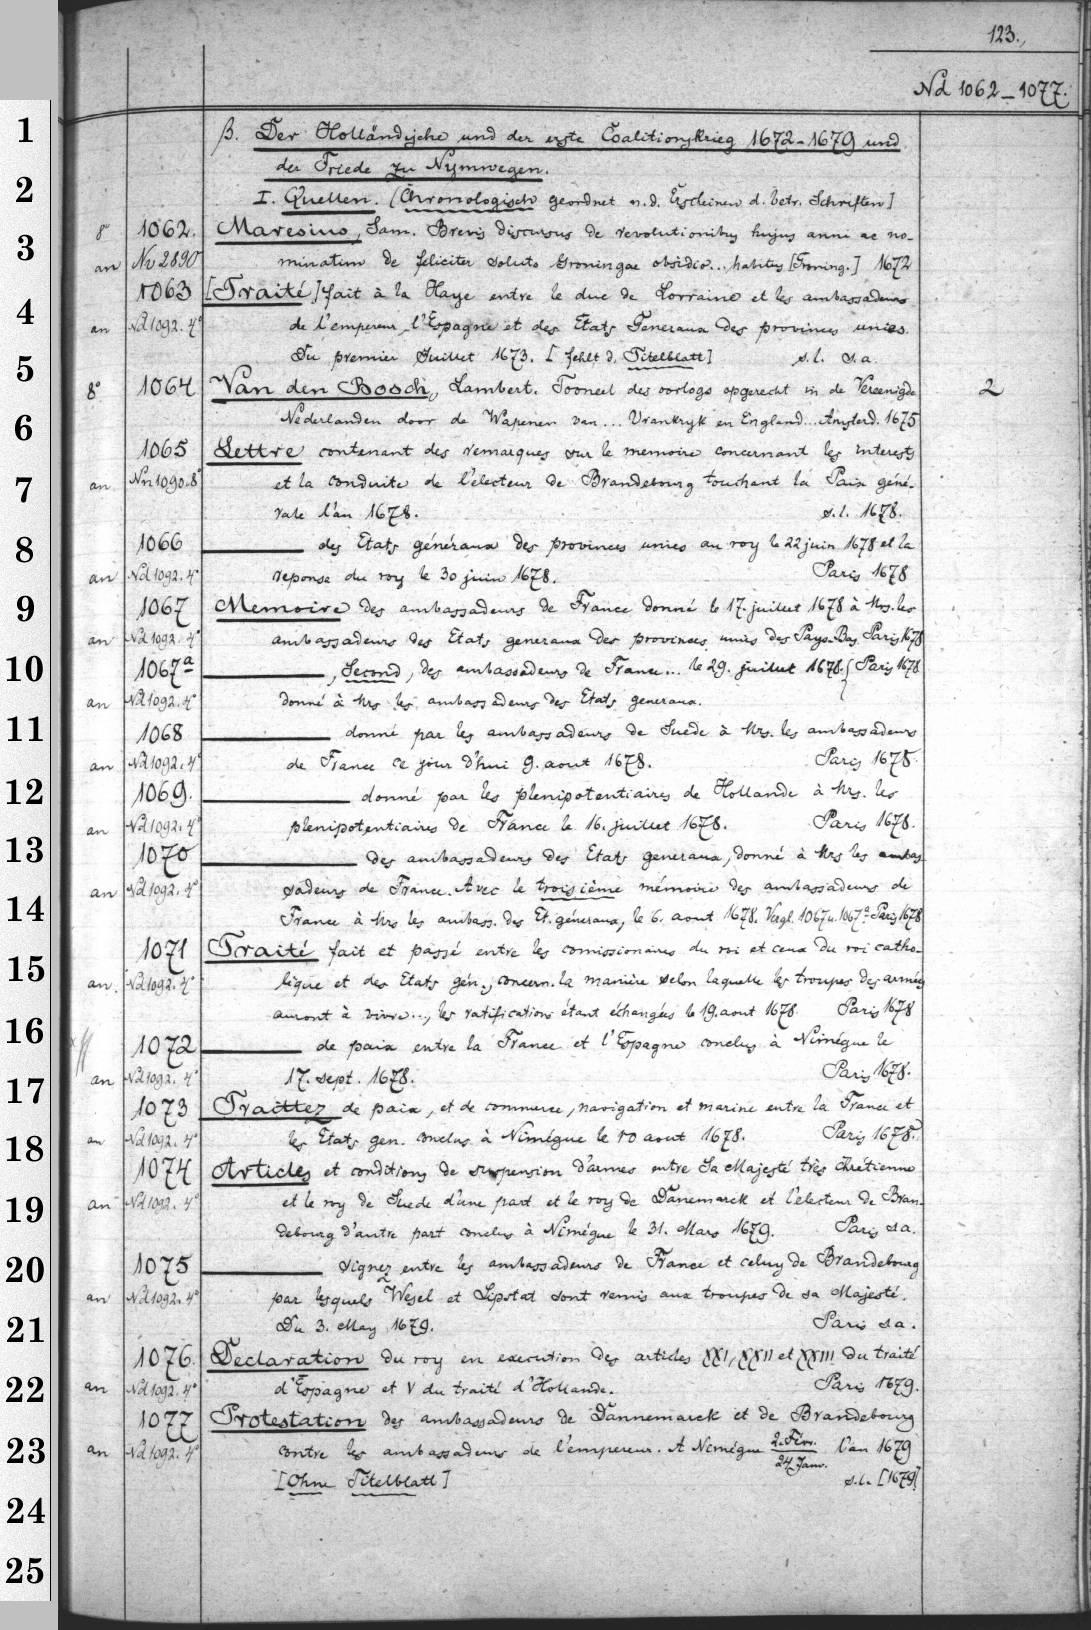 123.
Nd 1062-1077.
β. Der Holländische und der erste Coalitionskrieg 1672-1679 und
der Friede zu Nymwegen.
I. Quellen. [Chronologisch geordnet n. d. Erscheinen d. betr. Schriften]
8° 1062. Maresius, Sam. Brevis discursus de revolutionibus hujus anni ac no-
an Nv 2890 minatim de feliciter soluto Groningae obsidio... habitus [Groning.] 1672
1063 [Traité] fait à la Haye entre le duc de Lorraine et les ambassadeurs
an Nd 1092. 4° de l'empereur, l'Espagne et des Etats Generaux des provinces unies.
Du premier Juillet 1673. [fehlt d. Titelblatt] s.l. s.a.
8° 1064 Van den Bosch, Lambert. Tooneel des oorlogs opgerecht in de Vereenigde 2
Nederlanden door de Wapenen van... Vrankryk en England... Amsterd. 1675
1065 Lettre contenant des remarques sur le memoire concernant les interests
an Nn 1090. 8° et la conduite de l'electeur de Brandebourg touchant la Paix géné-
rale l'an 1678. s.l. 1678.
1066 ——— des Etats généraux des provinces unies au roy le 22 juin 1678 et la
an Nd 1092. 4° reponse du roy le 30 juin 1678. Paris 1678
1067 Memoire des ambassadeurs de France donné le 17. juillet 1678 à Mrs. les
an Nd 1092. 4° ambassadeurs des Etats generaux des provinces unies des Pays-Bas. Paris 1678
1067a ———, Second, des ambassadeurs de France... le 29. juillet 1678. { Paris 1678
an Nd 1092. 4° donné à Mrs les ambassadeurs des Etats generaux.
1068 ——— donné par les ambassadeurs de Suede à Mrs. les ambassadeurs
an Nd 1092. 4° de France ce jour d'hui 9. aout 1678. Paris 1678.
1069. ——— donné par les plenipotentiaires de Hollande à Mrs. les
an Nd 1092. 4° plenipotentiaires de France le 16. juillet 1678. Paris 1678.
1070 ——— des ambassadeurs des Etats generaux, donné à Mrs les ambas
an Nd 1092. 4° sadeurs de France. Avec le troisième mémoire des ambassadeurs de
France à Mrs les ambass. des Et. généraux, le 6. aout 1678. Vergl. 1067 u. 1067a. Paris 1678
1071 Traité fait et passé entre les comissionaires du roi et ceux du roi catho-
an. Nd 1092. 4° lique et des Etats gén., concern. la manière selon laquelle les troupes des armées
auront à vivre..., les ratifications étant échangées le 19. aout 1678. Paris 1678
1072 ——— de paix entre la France et l'Espagne conclus à Nimégue le
an Nd 1092. 4° 17. sept. 1678. Paris 1678.
1073 Traittez de paix, et de commerce, navigation et marine entre la France et
an Nd 1092. 4° les Etats gen. conclus à Nimégue le 10 aout 1678. Paris 1678.
1074 Articles et conditions de suspension d'armes entre Sa Majesté très Chrétienne
an Nd 1092. 4° et le roy de Suede d'une part et le roy de Danemarck et l'electeur de Bran-
debourg d'autre part conclus à Nimégue le 31. Mars 1679. Paris s.a.
1075 ——— signez entre les ambassadeurs de France et celuy de Brandebourg
an Nd 1092. 4° par lesquels Wesel et Lipstat sont remis aux troupes de sa Majesté.
Du 3. May 1679. Paris s.a.
1076. Declaration du roy en execution des articles XXI, XXII et XXIII du traité
an Nd 1092. 4° d'Espagne et V du traité d'Hollande. Paris 1679.
1077 Protestation des ambassadeurs de Dannemarck et de Brandebourg
an Nd 1092. 4° contre les ambassadeurs de l'empereur. A Nemégue 2. Févr./24. Janv. l'an 1679
[Ohne Titelblatt] s.l. [1679]
1
2
3
4
5
6
7
8
9
10
11
12
13
14
15
16
17
18
19
20
21
22
23
24
25